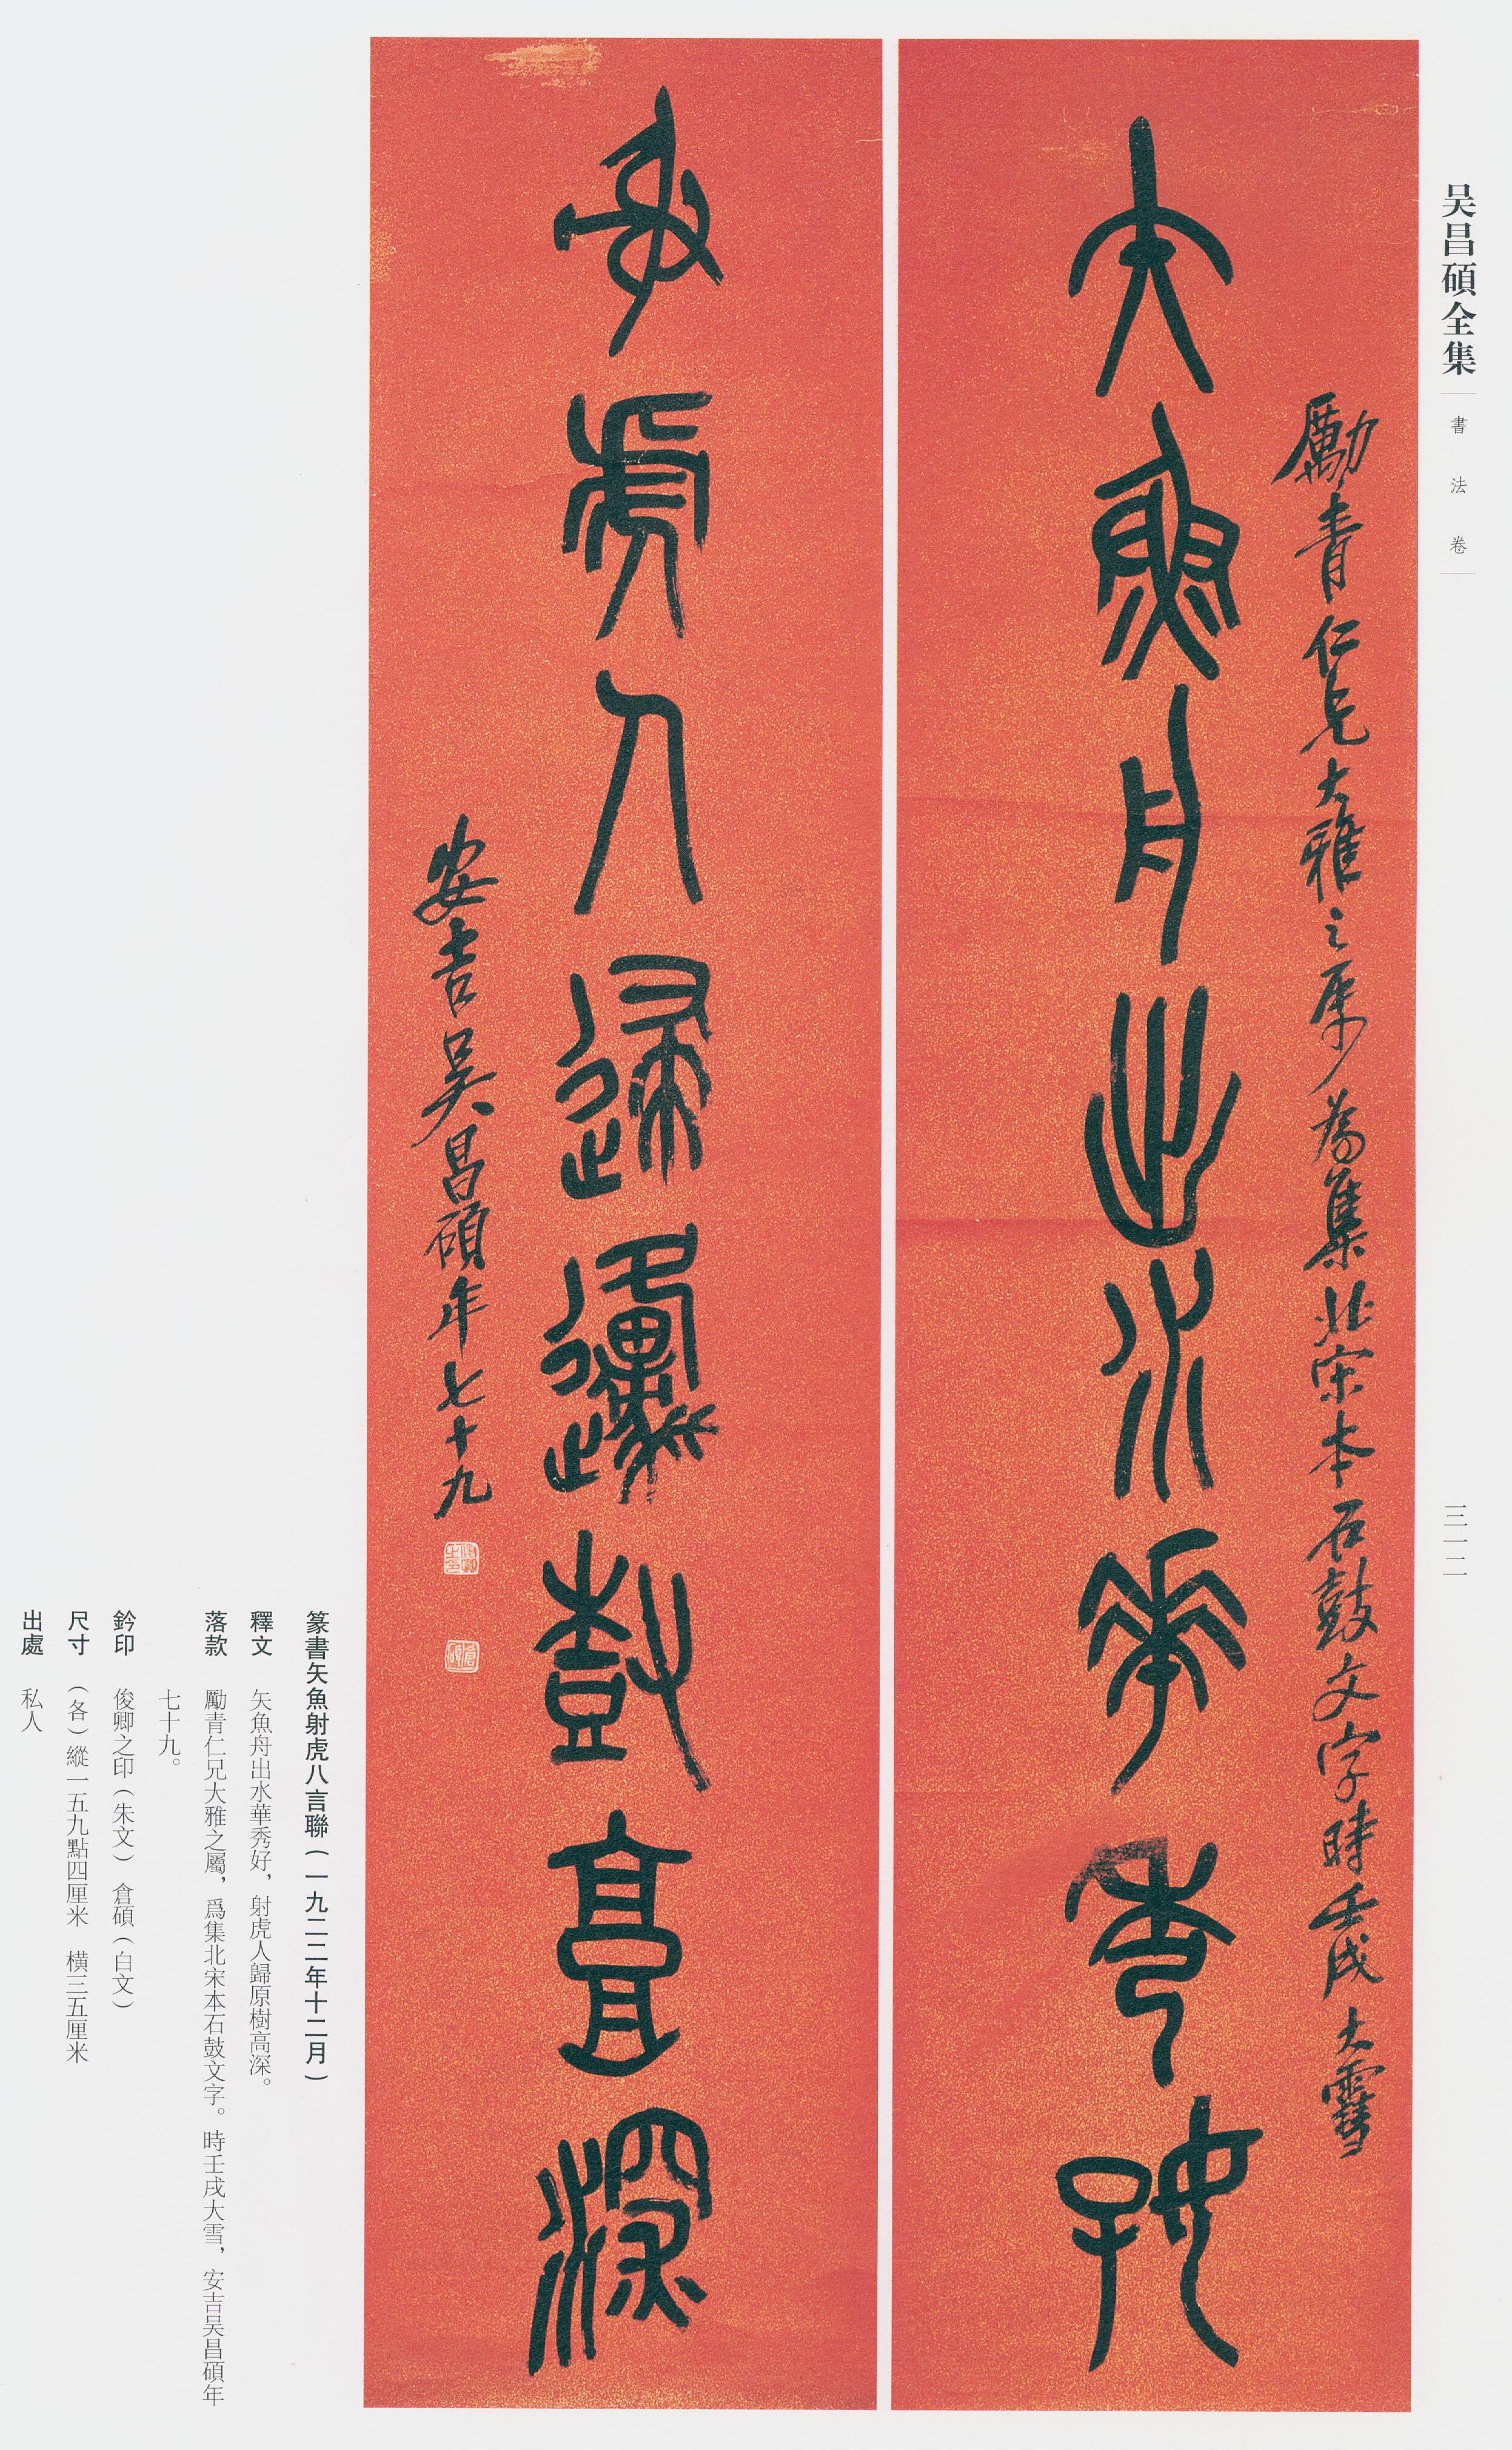 吴昌碩全集
書法卷
三一二
勵青仁兄大雅之属為集北宋本石鼓文字時壬戌大雪
矢魚舟出水華秀好
射虎人歸原樹高深
安吉吴昌碩年七十九
篆書矢魚射虎八言聯（一九二二年十二月）
釋文 矢魚舟出水華秀好，射虎人歸原樹高深。
落款 勵青仁兄大雅之屬，爲集北宋本石鼓文字。時壬戌大雪，安吉吴昌碩年
七十九。
鈐印 俊卿之印（朱文） 倉碩（白文）
尺寸 （各）縱一五九點四厘米 横三五厘米
出處 私人